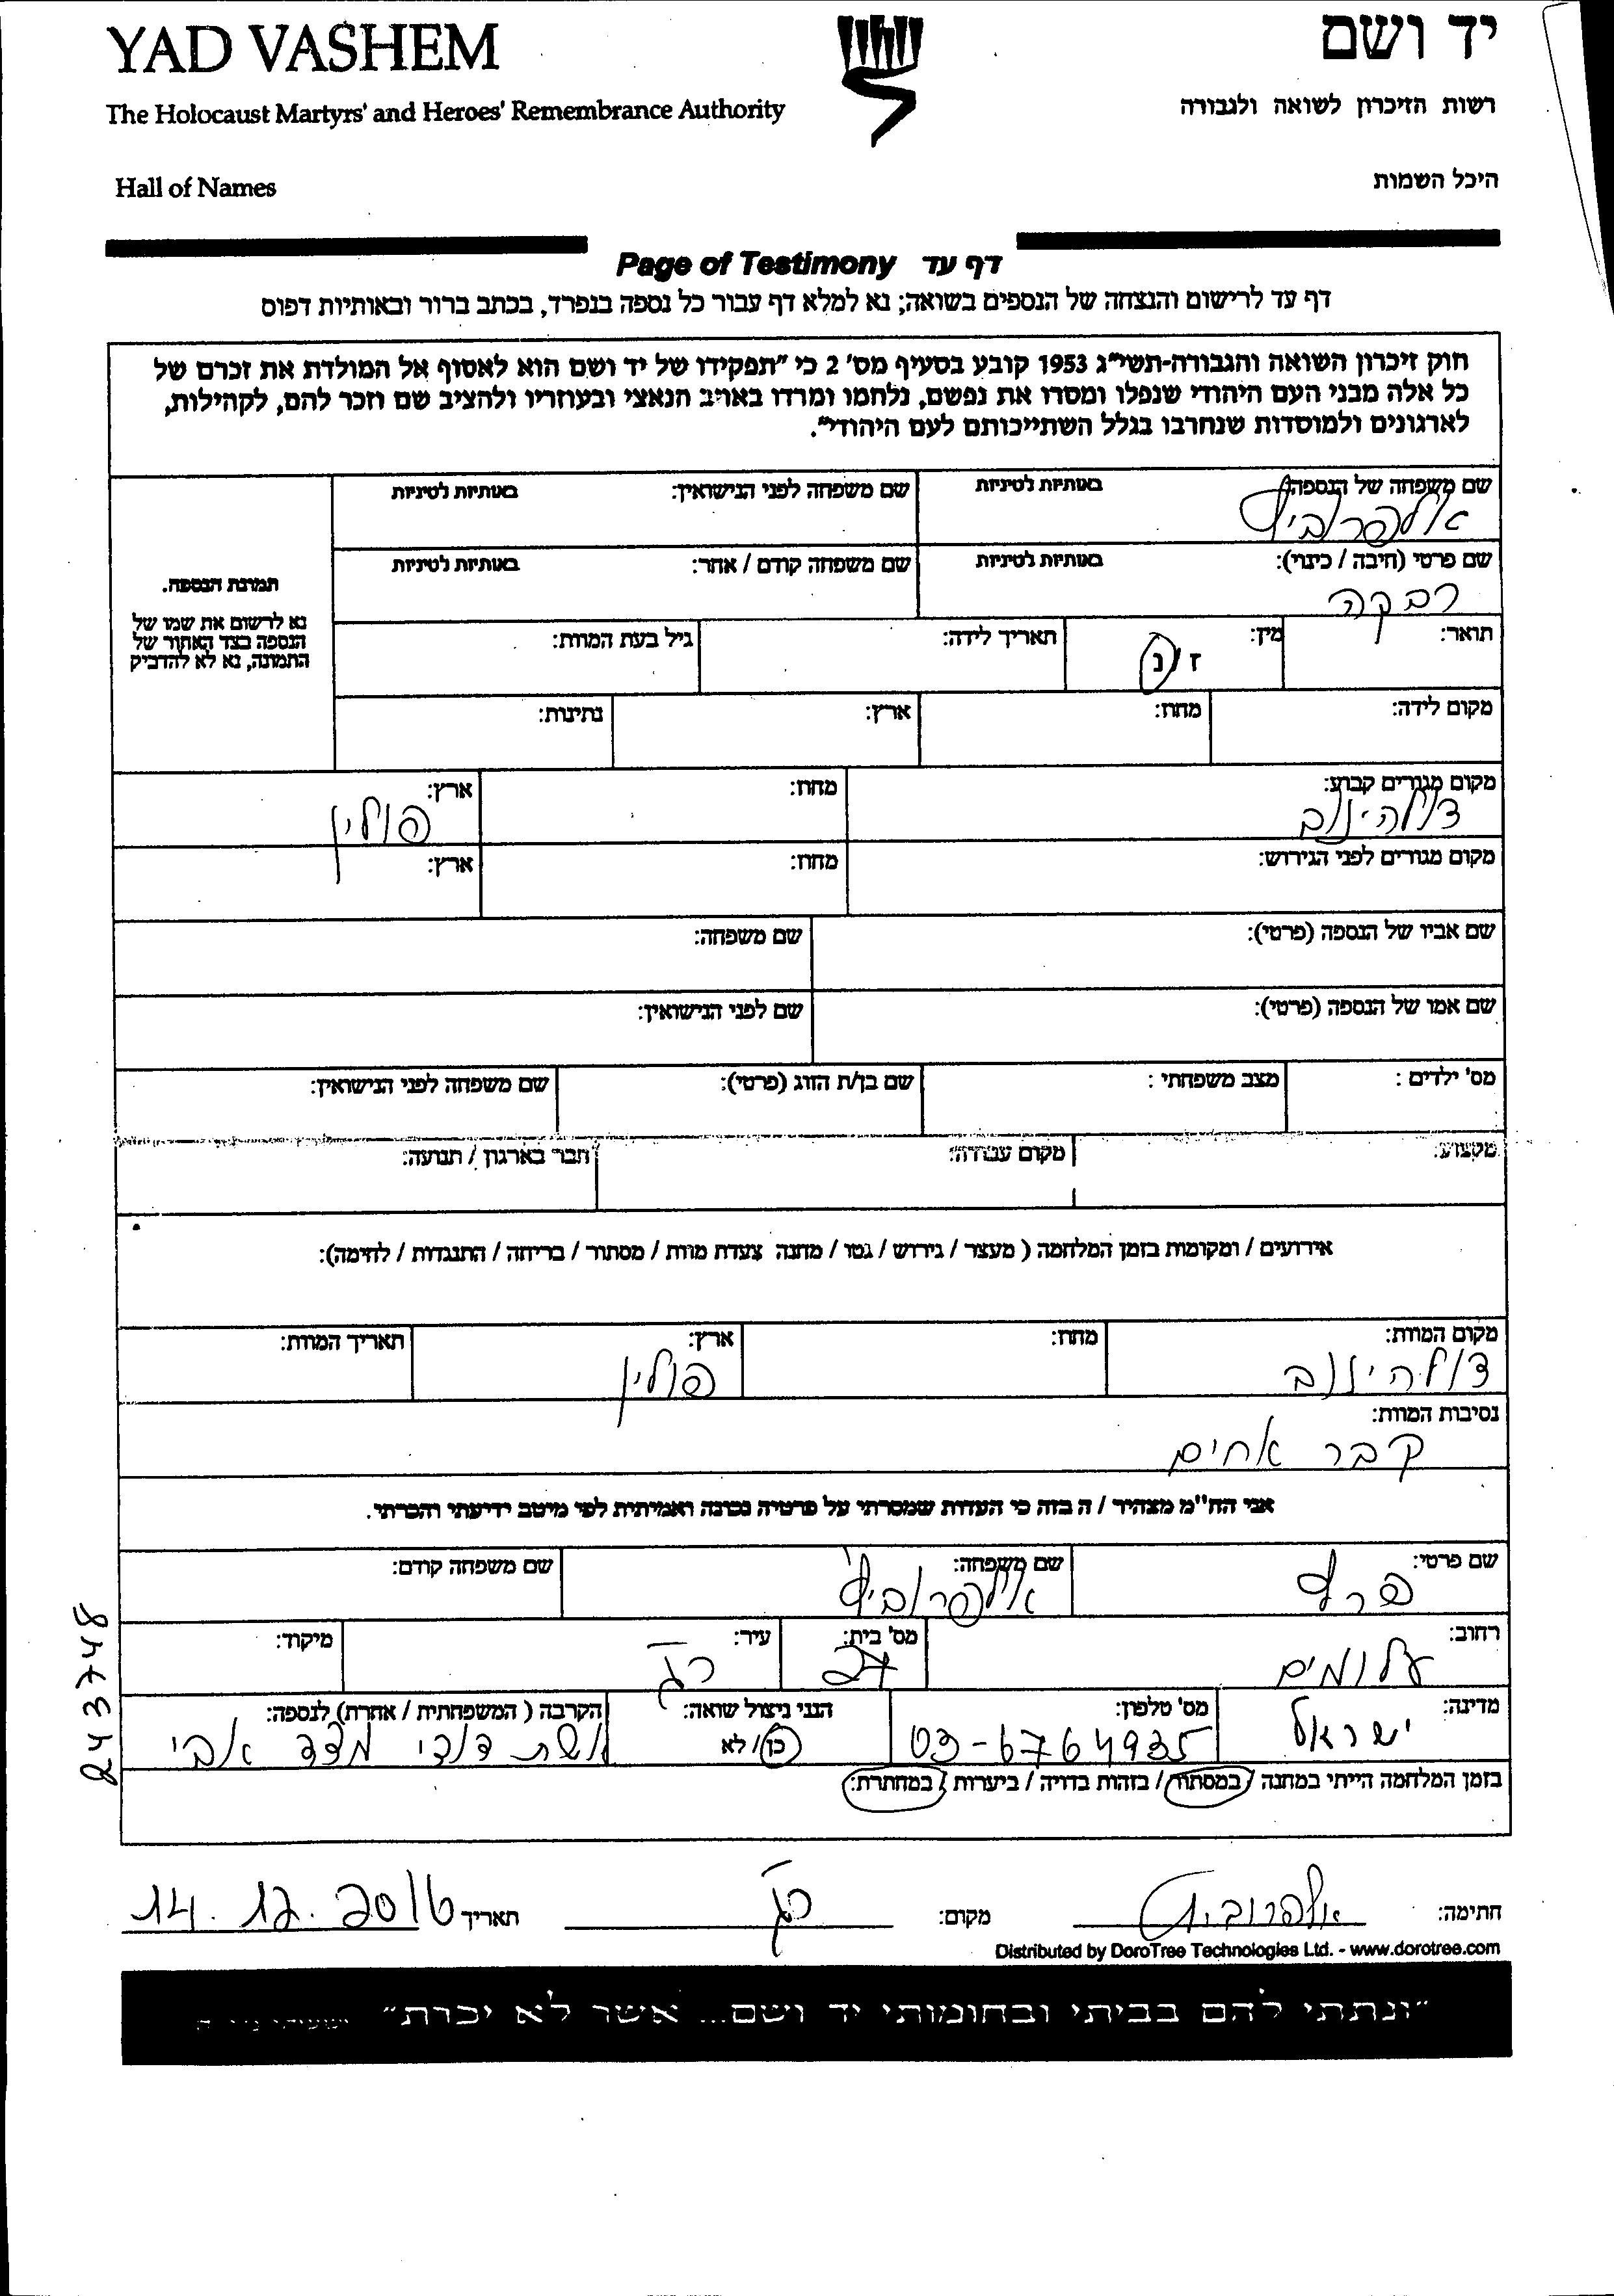 YAD VASHEM
יד ושם
The Holocaust Martyrs' and Heroes' Remembrance Authority
רשות הזיכרון לשואה ולגבורה
Hall of Names
היכל השמות
Page of Testimony דף עד
דף עד לרישום והנצחה של הנספים בשואה; נא למלא דף עבור כל נספה בנפרד, בכתב ברור ובאותיות דפוס
חוק זיכרון השואה והגבורה-תשי"ג 1953 קובע בסעיף מס' 2 כי "תפקידו של יד ושם הוא לאסוף אל המולדת את זכרם של
כל אלה מבני העם היהודי שנפלו ומסרו את נפשם, נלחמו ומרדו באויב הנאצי ובעוזריו ולהציב שם וזכר להם, לקהילות,
לארגונים ולמוסדות שנחרבו בגלל השתייכותם לעם היהודי".
שם משפחה של הנספה: באותיות לטיניות שם משפחה לפני הנישואין: באותיות לטיניות
אלפרוביץ
שם פרטי (חיבה / כינוי): באותיות לטיניות שם משפחה קודם / אחר: באותיות לטיניות
רבקה
תמונת הנספה.
נא לרשום את שמו של
הנספה בצד האחור של
התמונה, נא לא להדביק
תואר: מין: ז / נ תאריך לידה: גיל בעת המוות:
מקום לידה: מחוז: ארץ: נתינות:
מקום מגורים קבוע: מחוז: ארץ:
דולהינוב פולין
מקום מגורים לפני הגירוש: מחוז: ארץ:
שם אביו של הנספה (פרטי): שם משפחה:
שם אמו של הנספה (פרטי): שם לפני הנישואין:
מס' ילדים : מצב משפחתי : שם בן/ת הזוג (פרטי): שם משפחה לפני הנישואין:
מקצוע: מקום עבודה: חבר בארגון / תנועה:
אירועים / ומקומות בזמן המלחמה ( מעצר / גירוש / גטו / מחנה צעדת מוות / מסתור / בריחה / התנגדות / לחימה):
מקום המוות: מחוז: ארץ: תאריך המוות:
דולהינוב פולין
נסיבות המוות:
קבר אחים
אני הח"מ מצהיר / ה בזה כי העדות שמסרתי על פרטיה נכונה ואמיתית לפי מיטב ידיעתי והכרתי.
שם פרטי: שם משפחה: שם משפחה קודם:
אלפרוביץ
רחוב: מס' בית: עיר: מיקוד:
עלומים 27 רג
מדינה: מס' טלפון: הנני ניצול שואה: הקרבה ( המשפחתית / אחרת) לנספה:
ישראל 03-6764935 כן / לא אשת דודי מצד אבי
בזמן המלחמה הייתי במחנה / במסתור / בזהות בדויה / ביערות / במחתרת:
243748
חתימה: אלפרוביץ מקום: רג תאריך 14.12.2016
Distributed by DoroTree Technologies Ltd. - www.dorotree.com
"ונתתי להם בביתי ובחומותי יד ושם... אשר לא יכרת"